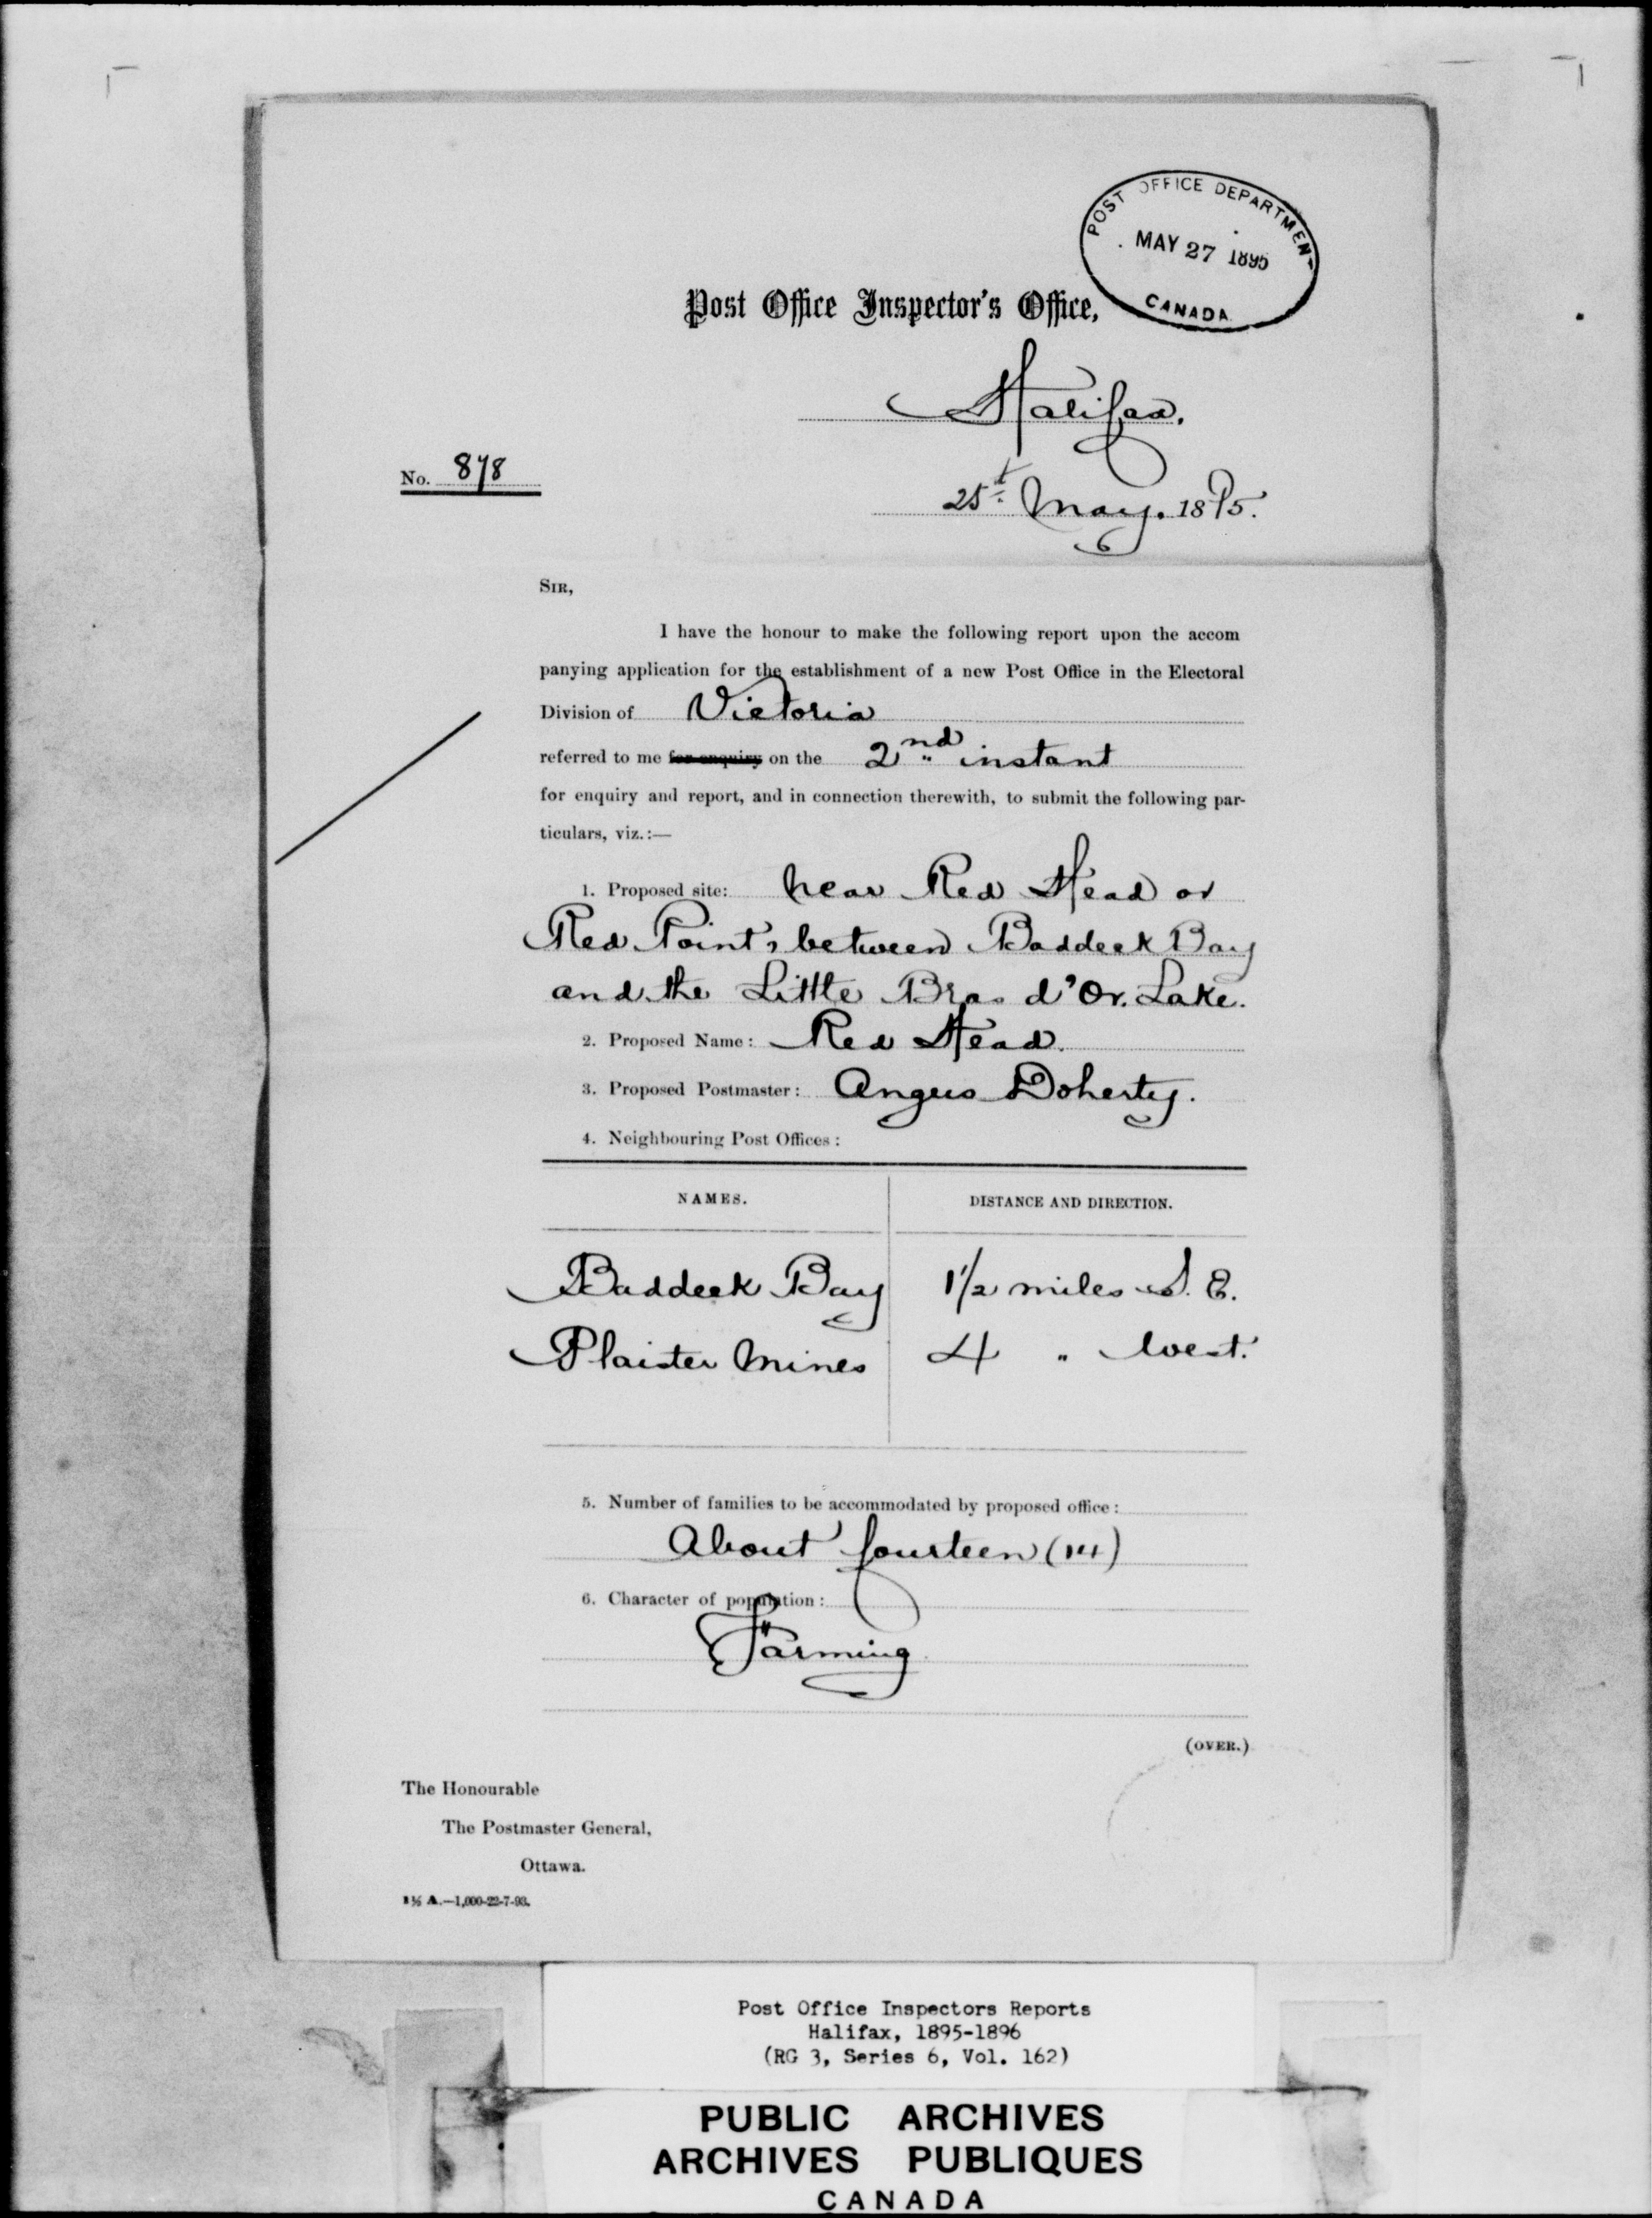 POST OFFICE DEPARTMENT
MAY 27 1895
CANADA
Post Office Inspector's Office,
Halifax.
No. 878
25th May. 1895.
SIR,
I have the honour to make the following report upon the accom
panying application for the establishment of a new Post Office in the Electoral
Division of Victoria
referred to me for enquiry on the 2nd instant
for enquiry and report, and in connection therewith, to submit the following par-
ticulars, viz.:—
1. Proposed site: near Red Head or
Red Point, between Baddeck Bay
and the Little Bras d'Or. Lake.
2. Proposed Name: Red Head.
3. Proposed Postmaster: Angus Doherty.
4. Neighbouring Post Offices:
NAMES. DISTANCE AND DIRECTION.
Baddeck Bay 1 1/2 miles S. E.
Plaister Mines 4 " West.
5. Number of families to be accommodated by proposed office:
About fourteen (14)
6. Character of population:
Farming
(OVER.)
The Honourable
The Postmaster General,
Ottawa.
A.—1,000-22-7-93.
Post Office Inspectors Reports
Halifax, 1895-1896
(RG 3, Series 6, Vol. 162)
PUBLIC ARCHIVES
ARCHIVES PUBLIQUES
CANADA